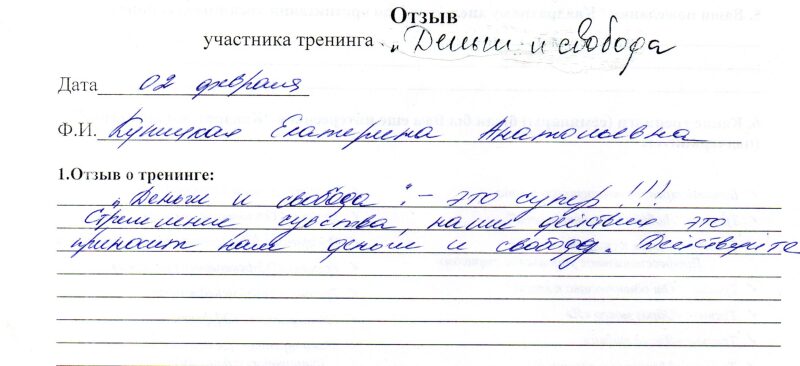 Отзыв
участника тренинга „Деньги и свобода
Дата 02 февраля
Ф.И. Екатерина Анатольевна
1.Отзыв о тренинге:
„Деньги и свобода" – это супер!!!
Стремление чувства, наши действия это
приносит нам деньги и свободу. Действуйте